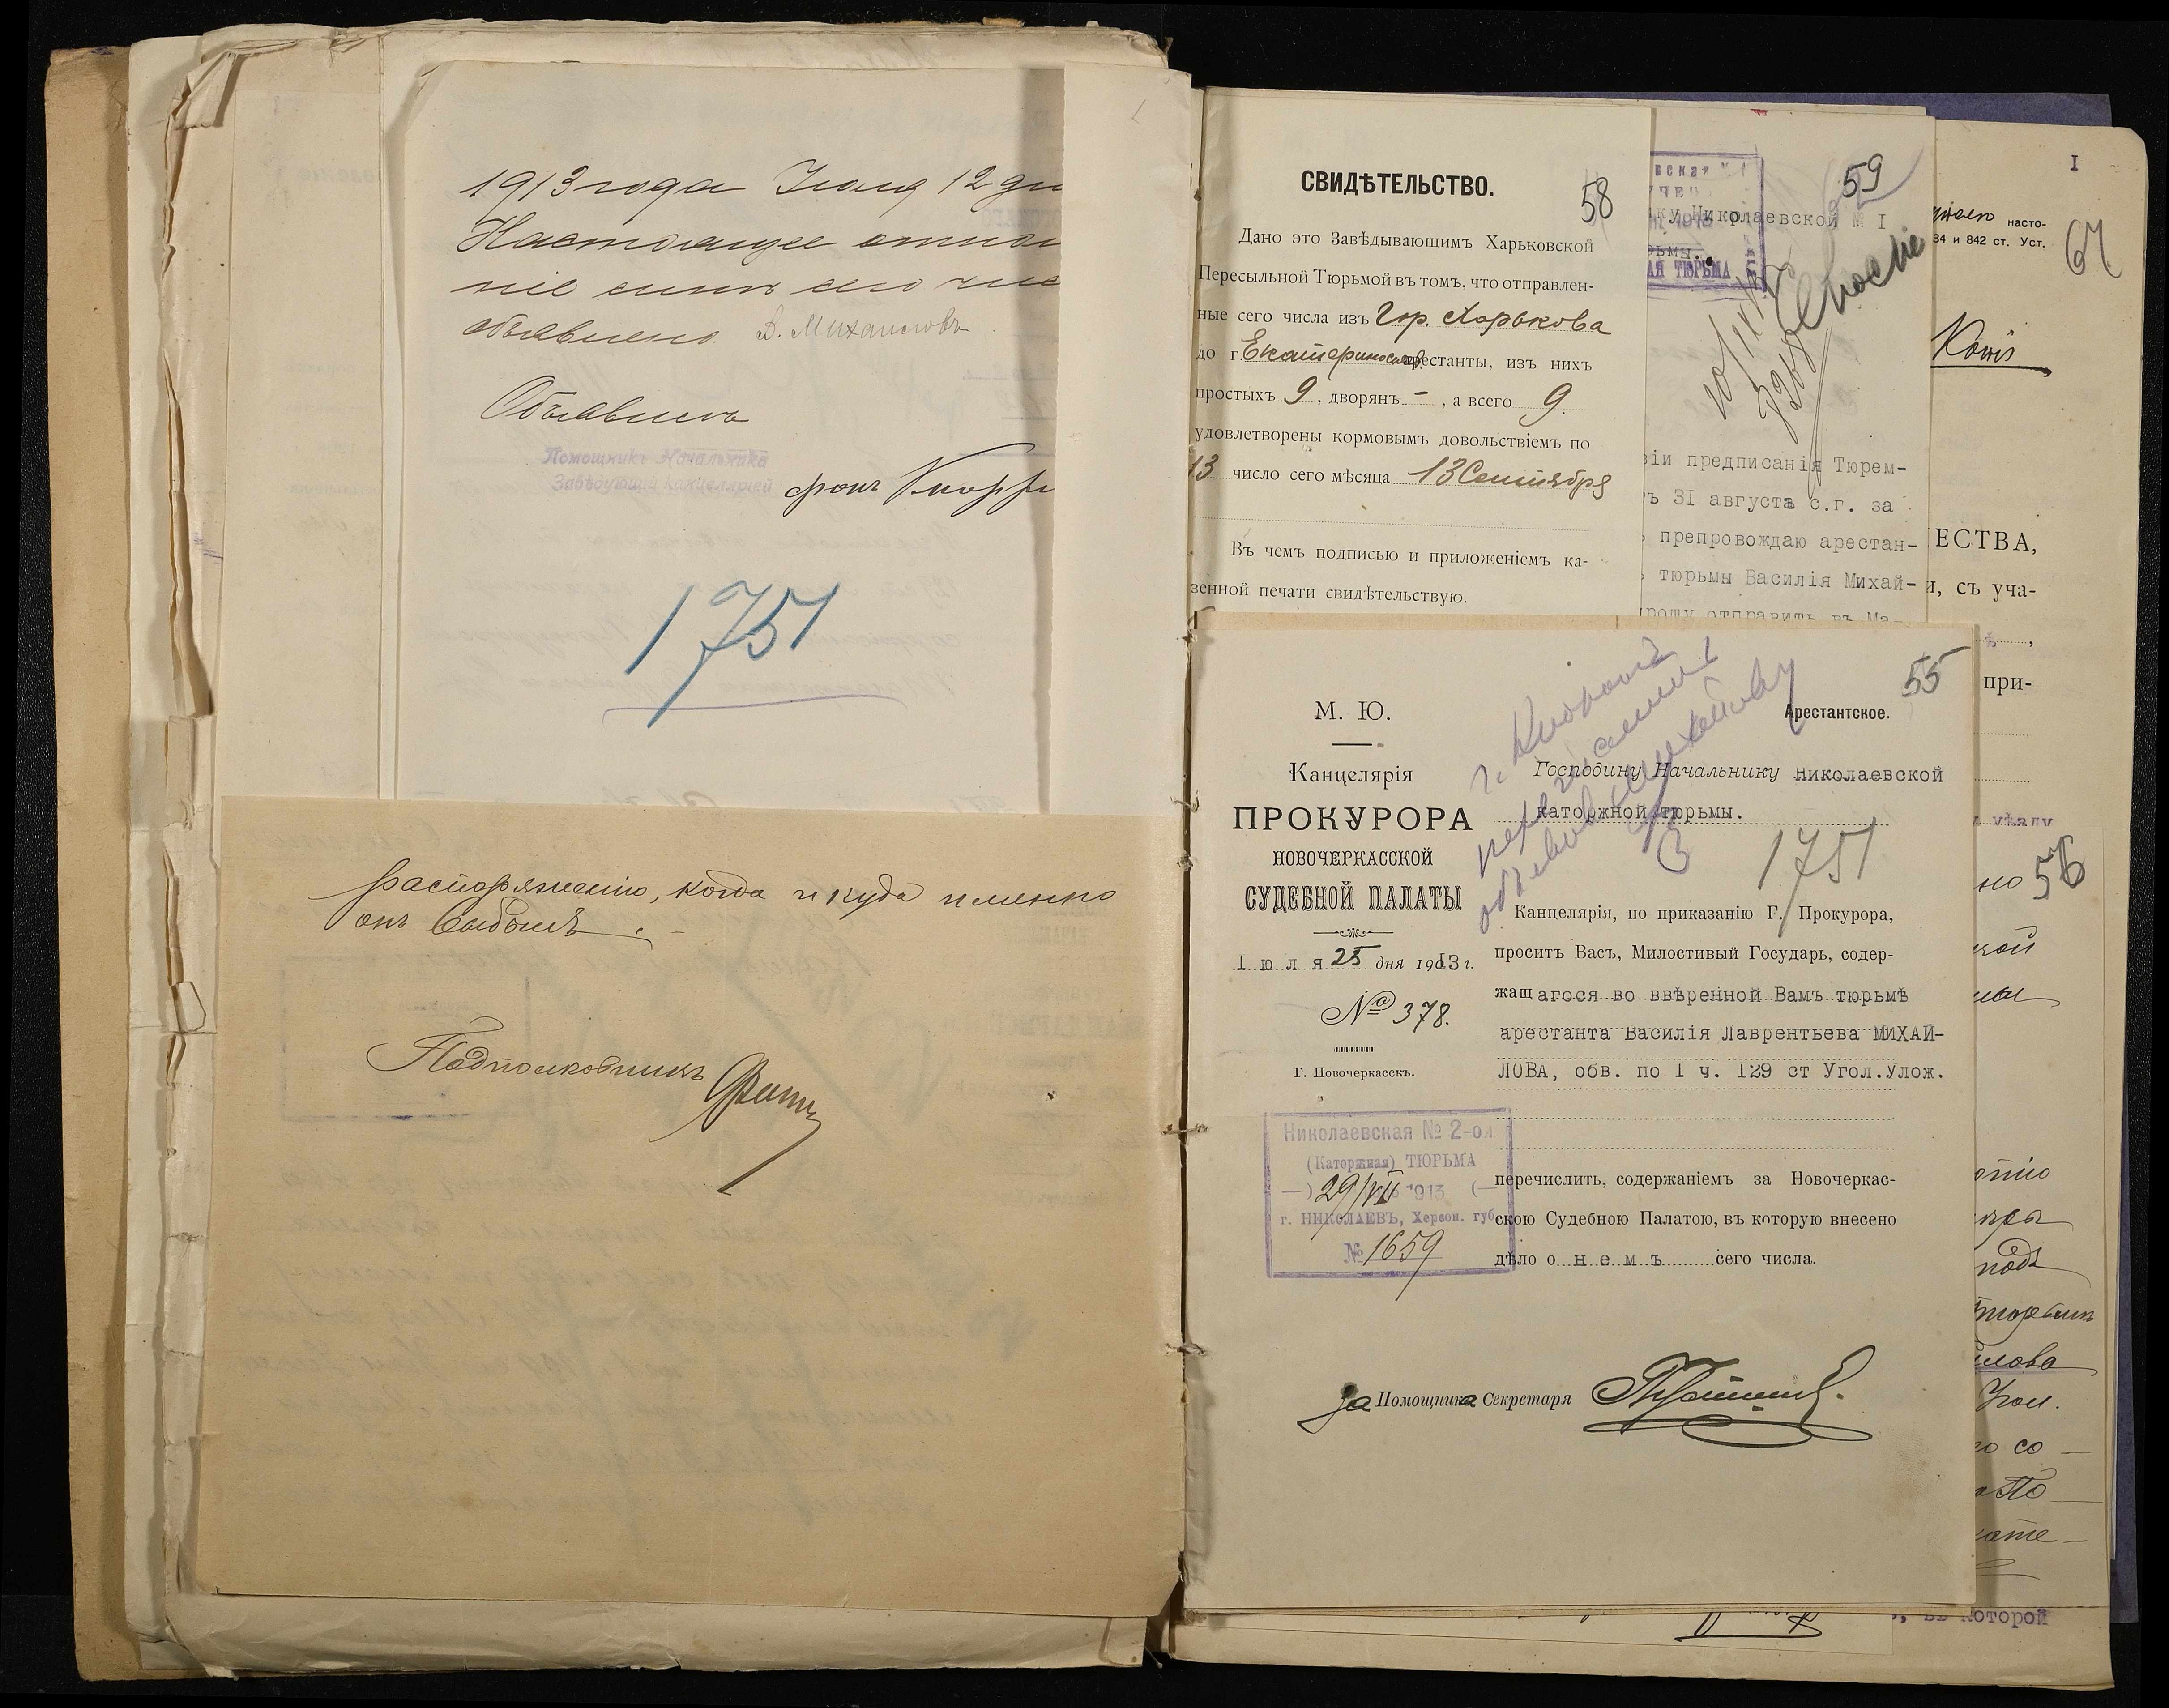 1913 года Іюля 12 дн
Настоящее отнош
ніе мнѣ сего чис
объявлено В. Михайловъ
Объявилъ
Помощникъ Начальника
Завѣдующій канцеляріей
фонъ Кнорре
1751
распоряженію, когда и куда именно
онъ выбылъ.
Подполковникъ
СВИДѢТЕЛЬСТВО.
58
Дано это Завѣдывающимъ Харьковской
Пересыльной Тюрьмой въ томъ, что отправлен-
ные сего числа изъ Гор. Харькова
до г. Екатеринослав арестанты, изъ нихъ
простыхъ 9, дворянъ -, а всего 9.
удовлетворены кормовымъ довольствіемъ по
13 число сего мѣсяца 13 Сентября
Въ чемъ подписью и приложеніемъ ка-
зенной печати свидѣтельствую.
59
ку Николаевской № I
рьмы.
АЯ ТЮРЬМА
віи предписанія Тюрем-
ъ 31 августа с.г. за
препровождаю арестан-
тюрьмы Василія Михай-
прошу отправить въ Ма-
I
насто-
34 и 842 ст. Уст.
64
ЕСТВА,
и, съ уча-
при-
уѣзду
но 56
55
М. Ю.
Арестантское.
Канцелярія
ПРОКУРОРА
НОВОЧЕРКАССКОЙ
СУДЕБНОЙ ПАЛАТЫ
Іюля 25 дня 1913 г.
№ 378.
Г. Новочеркасскъ.
Господину Начальнику Николаевской
каторжной тюрьмы.
1751
Канцелярія, по приказанію Г. Прокурора,
проситъ Васъ, Милостивый Государь, содер-
жащагося во ввѣренной Вамъ тюрьмѣ
арестанта Василія Лаврентьева МИХАЙ-
ЛОВА, обв. по 1 ч. 129 ст Угол.Улож.
перечислить, содержаніемъ за Новочеркас-
скою Судебною Палатою, въ которую внесено
дѣло о немъ сего числа.
Николаевская № 2-ой
(Каторжная) ТЮРЬМА
29/VII 1913
г. НИКОЛАЕВЪ, Херсон. губ.
№ 1659
За Помощника Секретаря
подъ
илова
Угол.
го со-
въ которой